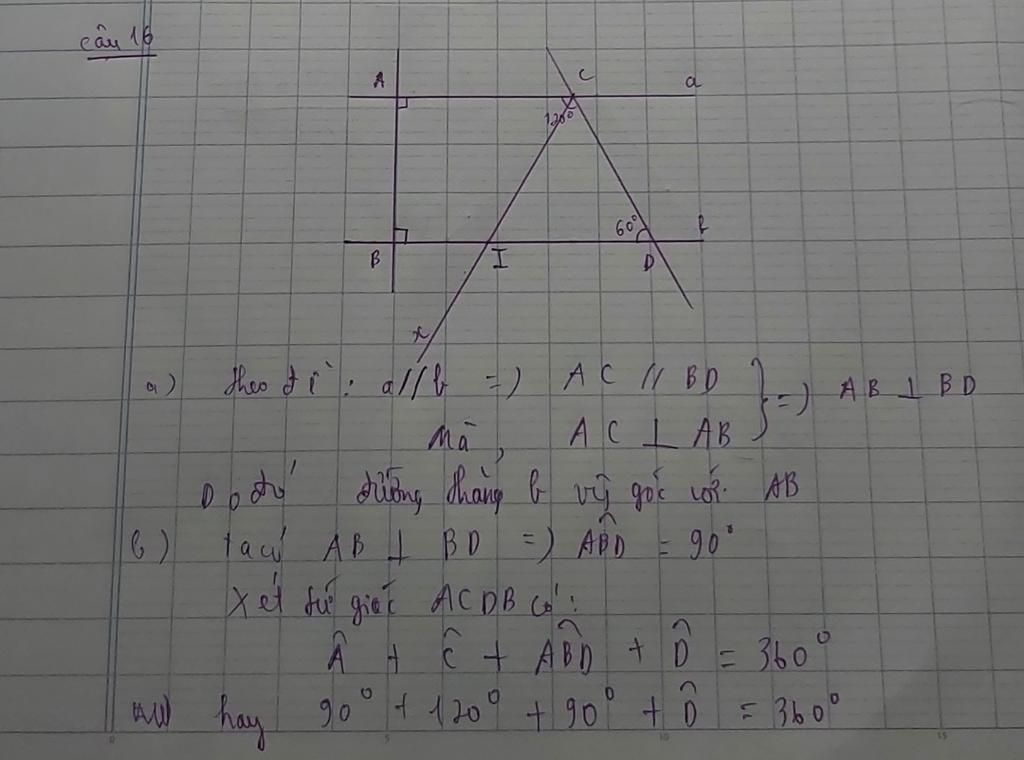 câu 16
A C a
120°
60° b
B I D
x
a) theo đề : a//b => AC // BD } => AB ⊥ BD
Mà, AC ⊥ AB
Do đó đường thẳng b vg góc với AB
b) ta có AB ⊥ BD => ABD̂ = 90°
Xét tứ giác ACDB có:
Â + Ĉ + ABD̂ + D̂ = 360°
hay 90° + 120° + 90° + D̂ = 360°